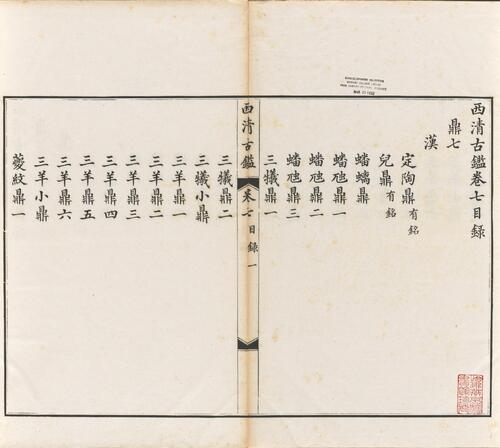 西清古鑑卷七目録
鼎七
漢
定陶鼎有銘
兒鼎有銘
蟠螭鼎
蟠虺鼎一
蟠虺鼎二
蟠虺鼎三
三犧鼎一
西清古鑑 卷七目録 一
三犧鼎二
三犧小鼎
三羊鼎一
三羊鼎二
三羊鼎三
三羊鼎四
三羊鼎五
三羊鼎六
三羊小鼎
夔紋鼎一